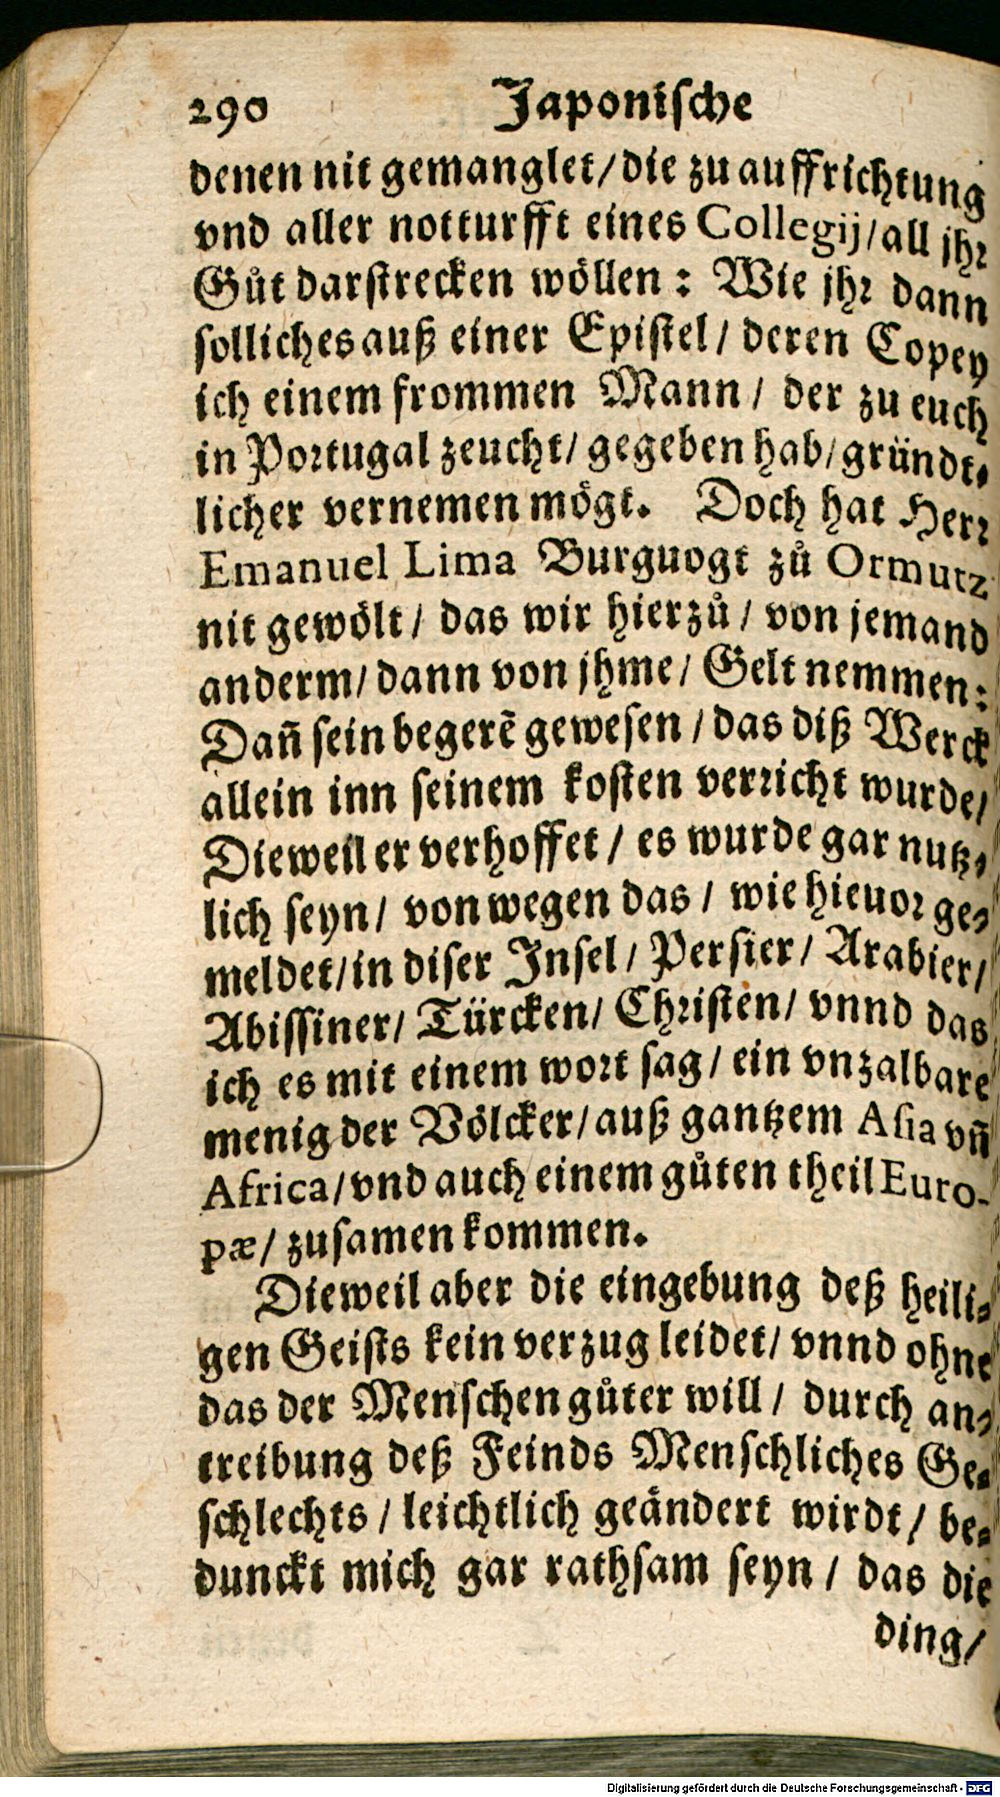 290 Japonische
denen nit gemanglet/die zu auffrichtung
vnd aller notturfft eines Collegij/all jhr
Gůt darstrecken wöllen: Wie jhr dann
solliches auß einer Epistel/ deren Copey
ich einem frommen Mann/ der zu euch
in Portugal zeucht/ gegeben hab/gründt⸗
licher vernemen mögt. Doch hat Herr
Emanuel Lima Burguogt zů Ormutz
nit gewölt/ das wir hierzů/ von jemand
anderm/dann von jhme/ Gelt nemmen:
Dañ sein begerẽ gewesen/das diß Werck
allein inn seinem kosten verricht wurde/
Dieweil er verhoffet/ es wurde gar nutz⸗
lich seyn/ von wegen das/ wie hieuor ge⸗
meldet/in diser Insel/ Persier/ Arabier/
Abissiner/ Türcken/ Christen/ vnnd das
ich es mit einem wort sag/ ein vnzalbare
menig der Völcker/auß gantzem Asia vñ
Africa/vnd auch einem gůten theil Euro-
pæ/ zusamen kommen.
Dieweil aber die eingebung deß heili⸗
gen Geists kein verzug leidet/ vnnd ohne
das der Menschen gůter will/ durch an⸗
treibung deß Feinds Menschliches Ge⸗
schlechts/ leichtlich geändert wirdt/ be⸗
dunckt mich gar rathsam seyn/ das die
ding/
Digitalisierung gefördert durch die Deutsche Forschungsgemeinschaft - DFG